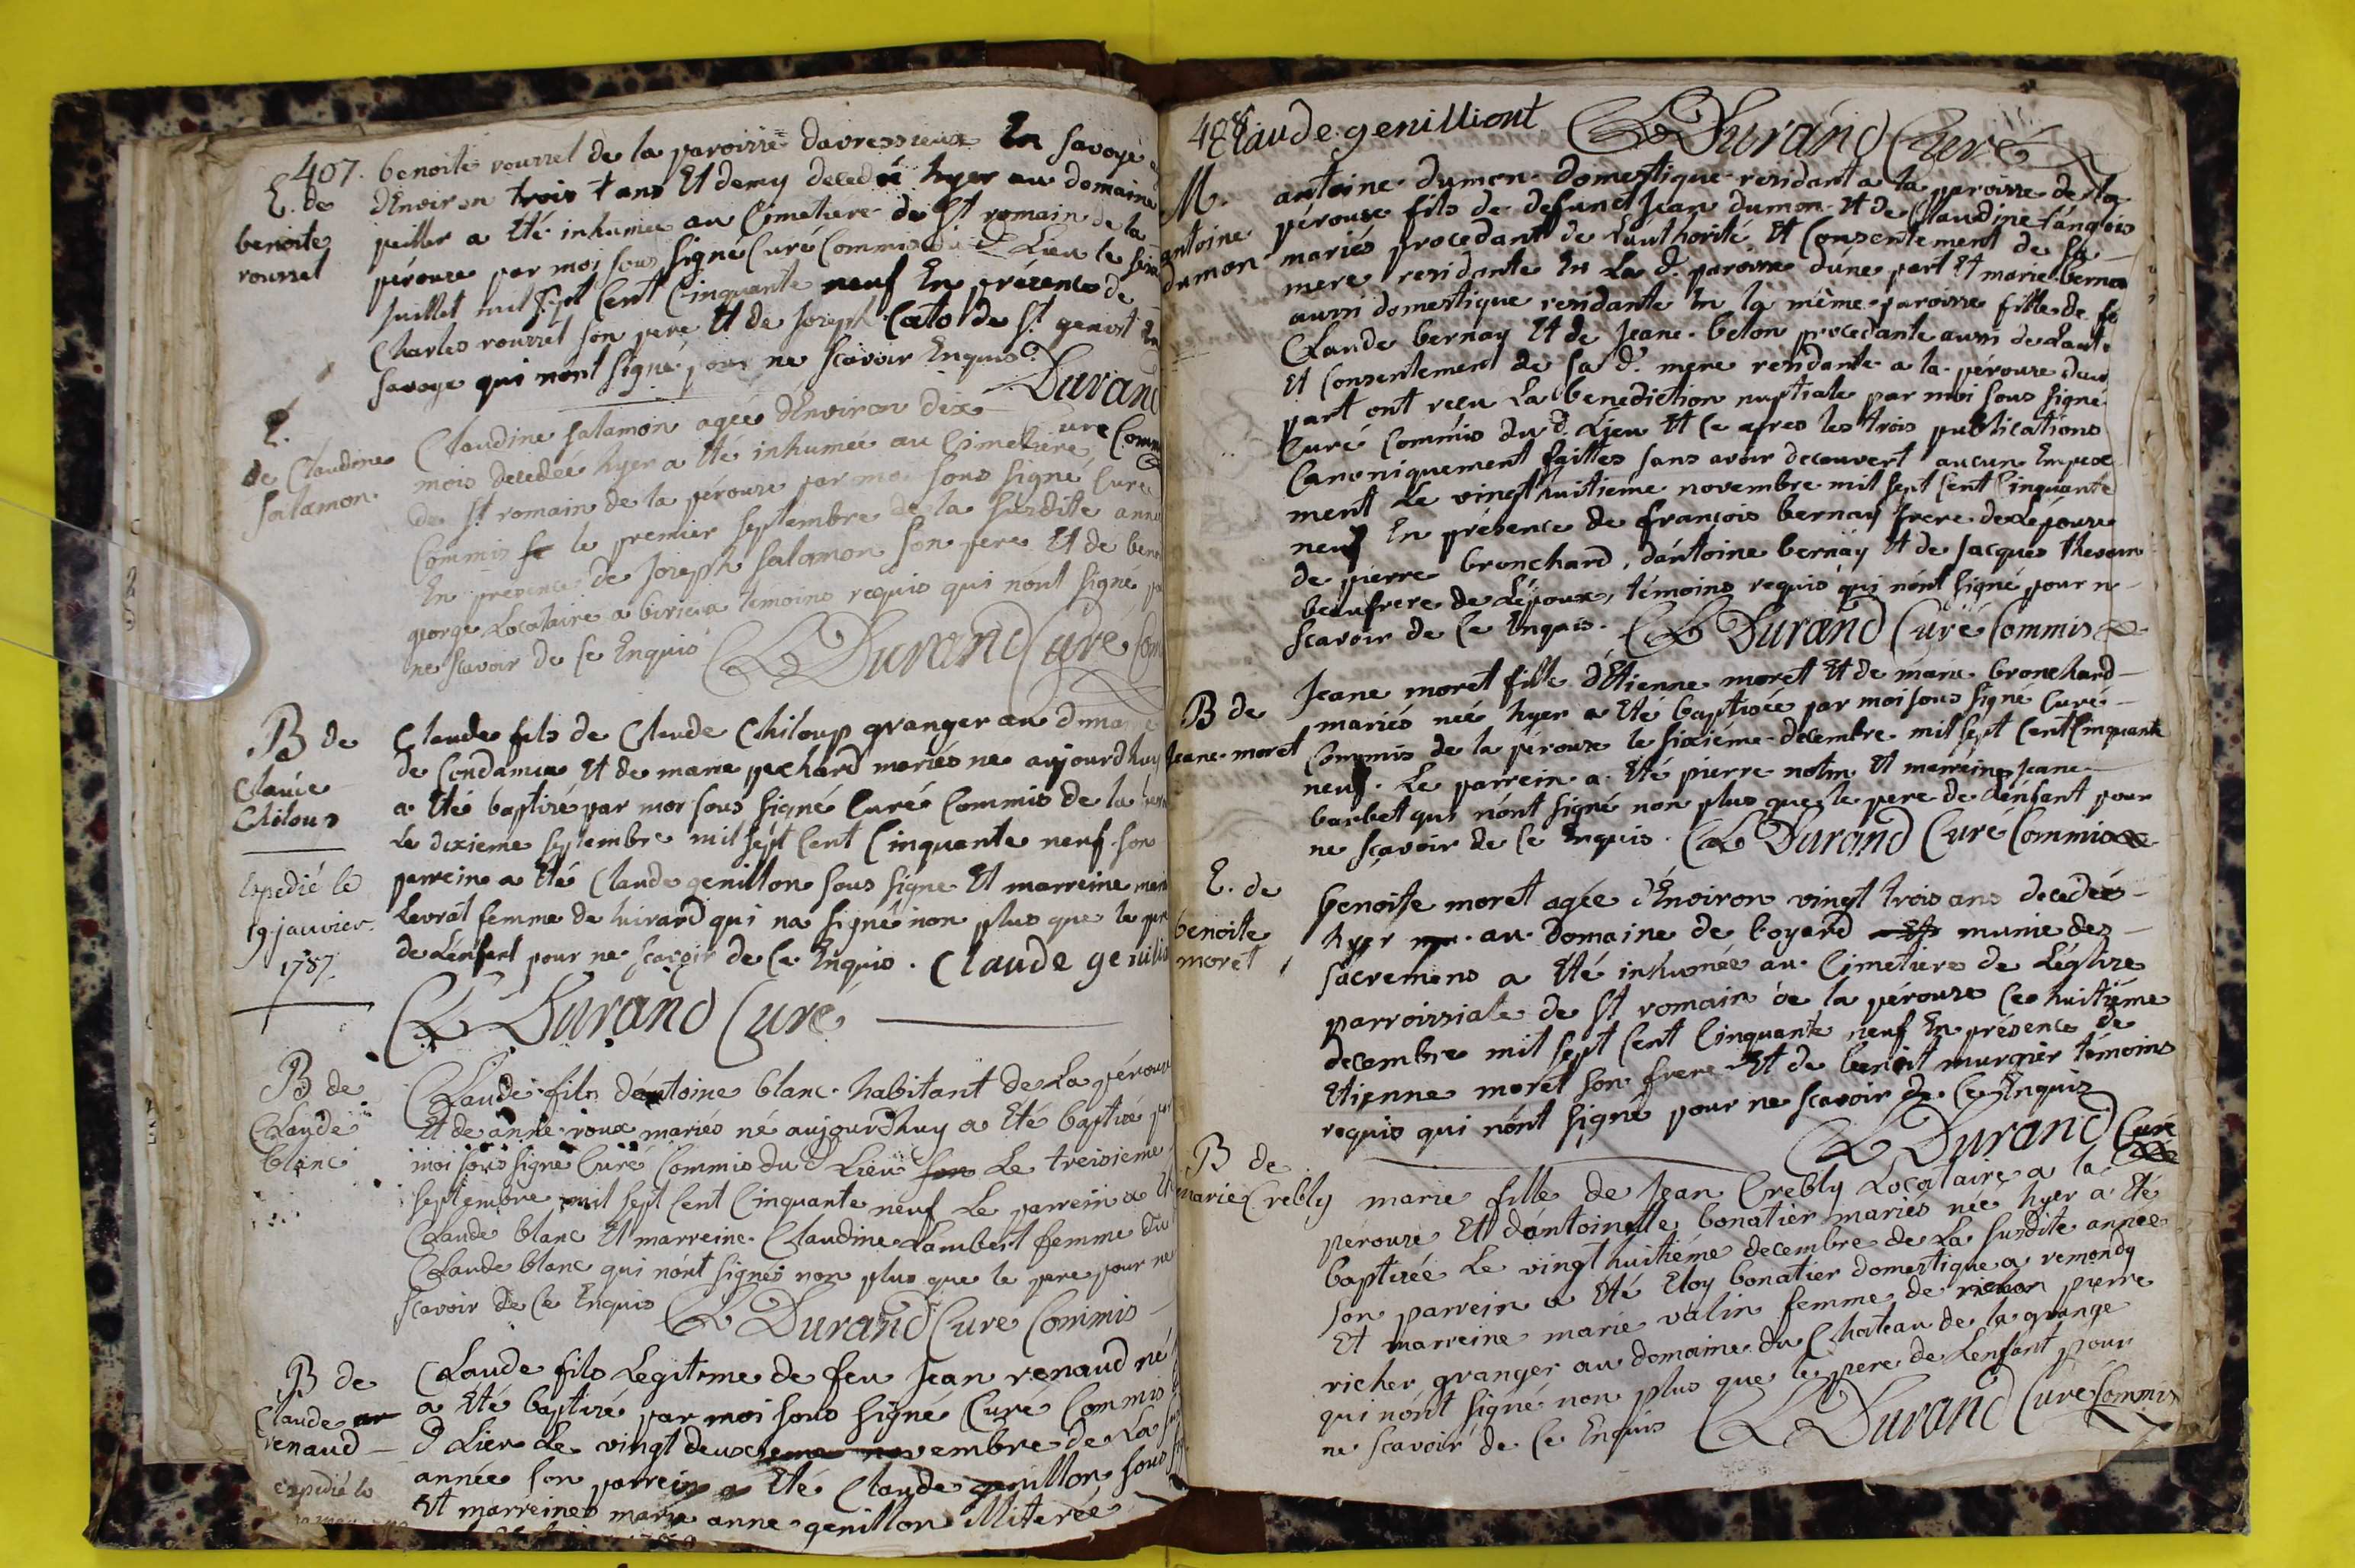 407.
E. de
benoite
rousset
benoite rousset de la paroisse davressieux En savoye
dEnviron trois ans Et demy decedée hyer au domaine
peiller a Eté inhumée au Cimetiere de St romain de la
pérouse par moi sous signé Curé Commis du d. Lieu le
juillet mil sept Cent Cinquante neuf En présence de
Charles rousset son pere Et de joseph Cato de St genist En
savoye qui nónt signé pour ne scavoir Enquis.
Durand
Curé Comm
E.
de Claudine
salamon
Claudine salamon agée dEnviron dix
mois decedée hyer a Eté inhumée au Cimetiere
de St romain de la pérouse par moi sous signé Curé
Commis le premier septembre de la susdite anné
En presence de Joseph salamon son pere Et de
george Locataire a temoins requis qui nónt signé
ne scavoir de Ce Enquis Durand Curé Com
B de
Claude
Chiloup
Expedié le
19 janvier
1787.
Claude fils de Claude Chiloup granger au domaine
de Condamine Et de marie pechard mariés né aujourdhuy
a Eté baptisé par moi sous signé Curé Commis de la
Le dixieme septembre mil sept Cent Cinquante neuf. son
parrein a Eté Claude genillon sous signé Et marreine
Levrat femme de huirard qui na signé non plus que le pere
de Lénfant pour ne scavoir de Ce Enquis. Claude genillio
Durand Curé
B de
Claude
blanc
Claude fils dántoine blanc habitant de La pérouse
Et de anne roux mariés né aujourdhuy a Eté baptisé
moi sous signé Curé Commis du d Lieu Le treisieme
septembre mil sept Cent Cinquante neuf Le parrein a Et
Claude blanc Et marreine Claudine Lambert femme du
Claude blanc qui nónt signés non plus que le pere pour ne
scavoir de Ce Enquis Durand Curé Commis
B de
Claude
renaud
expedié le
Claude fils Legitime de feu Jean renaud né
a Eté baptisé par moi sous signé Curé Commis
d Lieu Le vingt deux vembre de La
année son parrein a Eté Claude genillon sous
Et marreine marie anne genillon illiterée
408
Claude genilliont Durand Curé
M.
antoine
dumon
antoine dumon domestique residant a la paroisse de la
pérouse fils de defunct Jean dumon Et de Claudine Lánglois
mariés procedant de Láuthorité Et Consentement de sa
mere residante En La d. paroisse dúne part Et marie berna
aussi domestique residante En la même paroisse fille de
Claude bernay Et de Jeane belon procedante aussi de Laut
Et Consentement de sa d. mere residante a la pérouse
part ont recu La benediction nuptiale par moi sous signé
Curé Commis du d. Lieu Et Ce apres les trois publications
Canoniquement faittes sans avoir decouvert aucun Empeche
ment Le vingt huitieme novembre mil sept Cent Cinquante
neuf En présence de françois bernay frere de Lépouse
de pierre bronchard, dántoine bernay Et de jacques
beaufrere de Lépoux, témoins requis qui nónt signé pour n
scavoir de Ce Enquis. Durand Curé Commis
B de
Jeane moret
Jeane moret fille dÉtienne moret Et de marie bronchard
mariés née hyer a Eté baptisée par moi sous signé Curé
Commis de la pérouse le sixiéme decembre mil sept Cent Cinquante
neuf. Le parrein a Eté pierre Et marreine Jeane
barbet qui nónt signé non plus que le pere de Lénfant pour
ne sçavoir de Ce Enquis. Durand Curé Commis
E. de
benoite
moret
benoite moret agée dÉnviron vingt trois ans decedée
hyer au domaine de boyard munie des
sacremens a Eté inhumée au Cimetiere de Léglise
parroissiale de St romain de la pérouse Ce huitiéme
decembre mil sept Cent Cinquante neuf En présence de
Etienne moret son frere Et de benoit murgier témoins
requis qui nónt signé pour ne scavoir de Ce Enquis
Durand Curé
B de
marie Crebly
marie fille de Jean Crebly Locataire a la
pérouse Et dántoinette bonatier mariés née hyer a Eté
baptisée Le vingt huitiéme decembre de La susdite année
son parrein a Eté Eloy bonatier domestique a remondy
Et marreine marie valin femme de pierre
richer granger au domaine du Chateau de la grange
qui nónt signé non plus que le pere de Lenfant pour
ne scavoir de Ce Enquis Durand Curé Commis